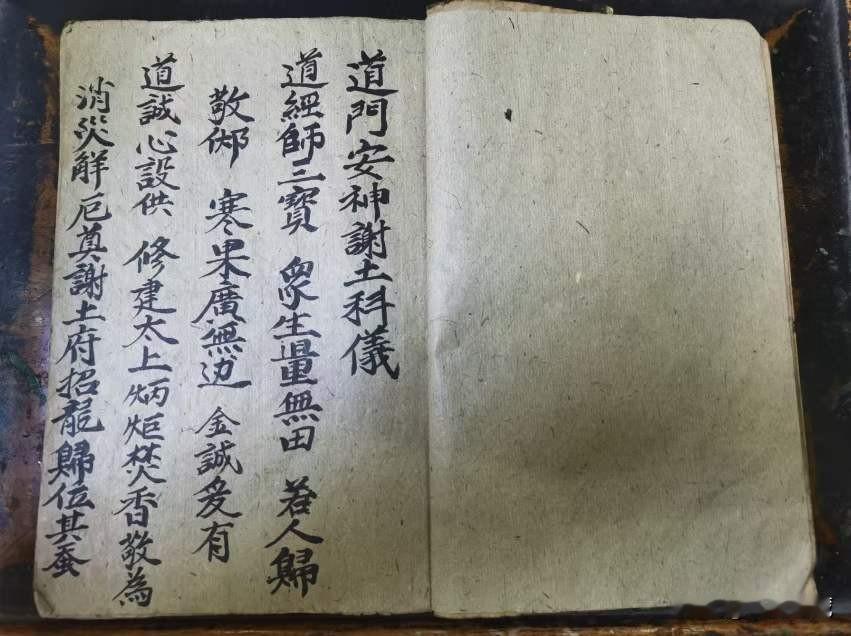 道門安神謝土科儀
道經師三寶 衆生量無田 若人歸
敬𨚗 寒果廣無边 金誠爰有
道誠心設供 修建太上炳炬焚香敬為
消災解厄奠謝土府招龍歸位其蚕